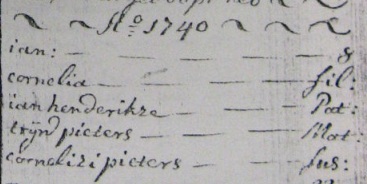 ~ ~ Ao 1740 ~ ~ ~
ian: — — — — 8
cornelia — — — fil:
ian henderikze — — Pat:
trijn pieters — — — Mat:
cornelizi pieters — — sus: